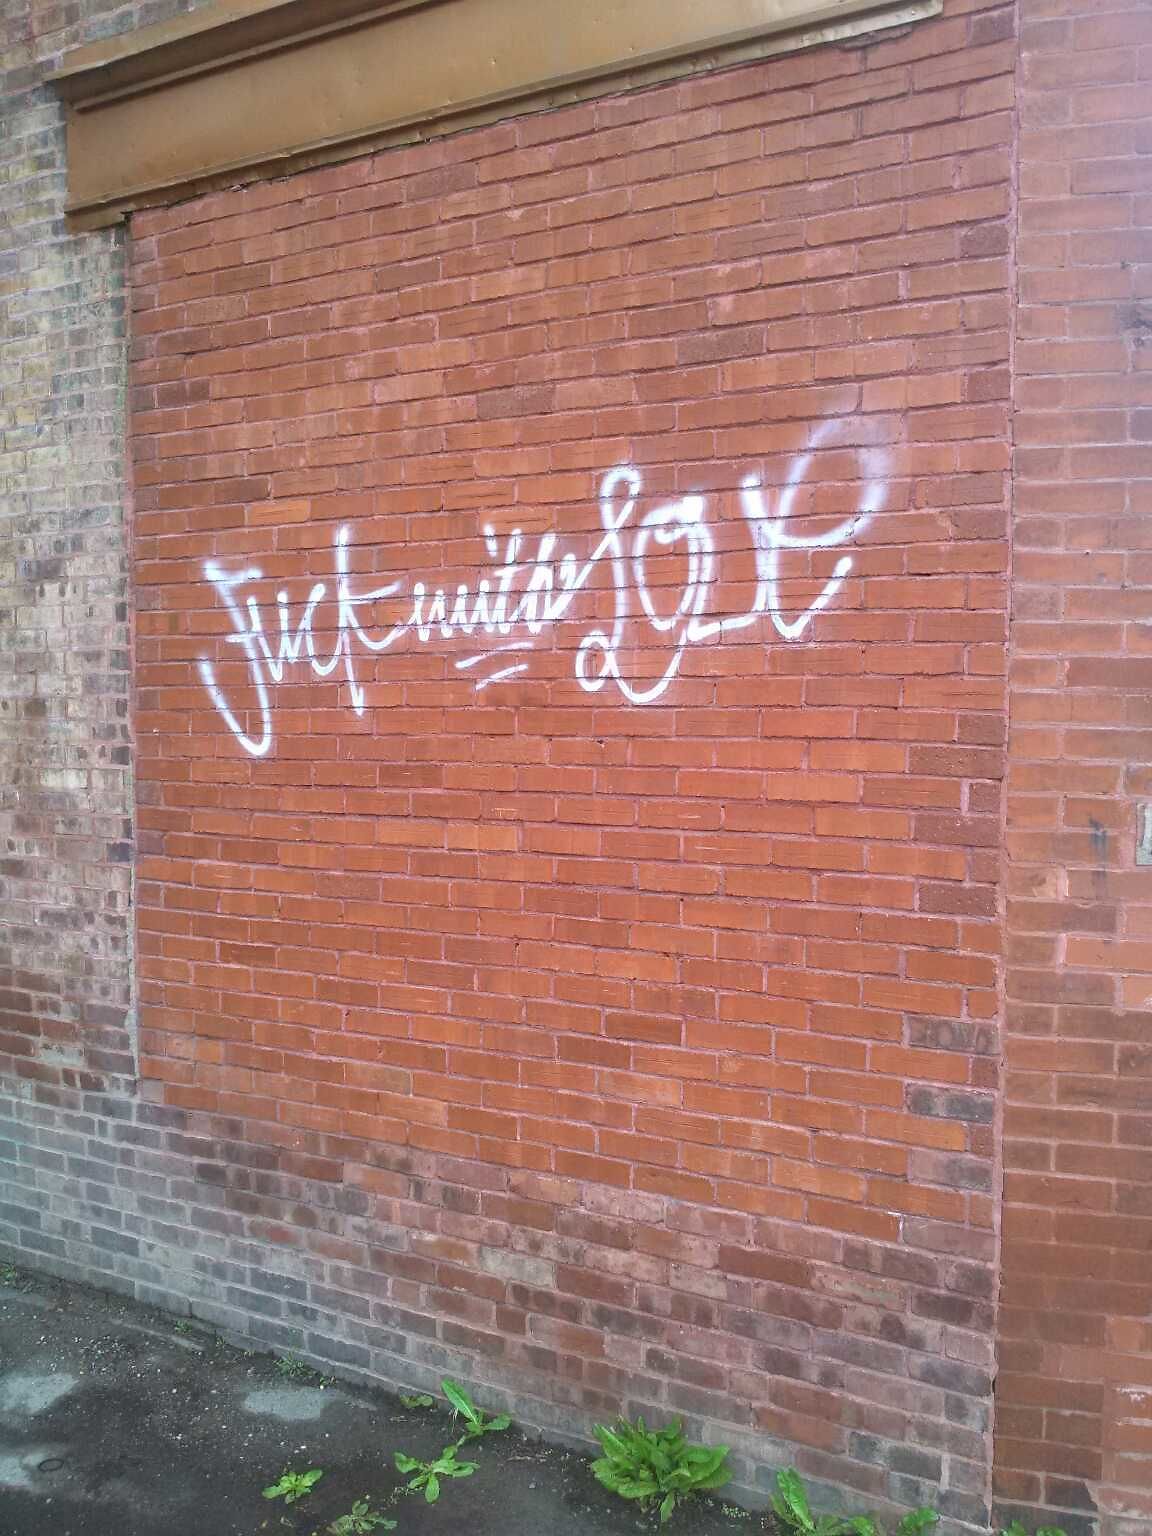 Fuck with Love